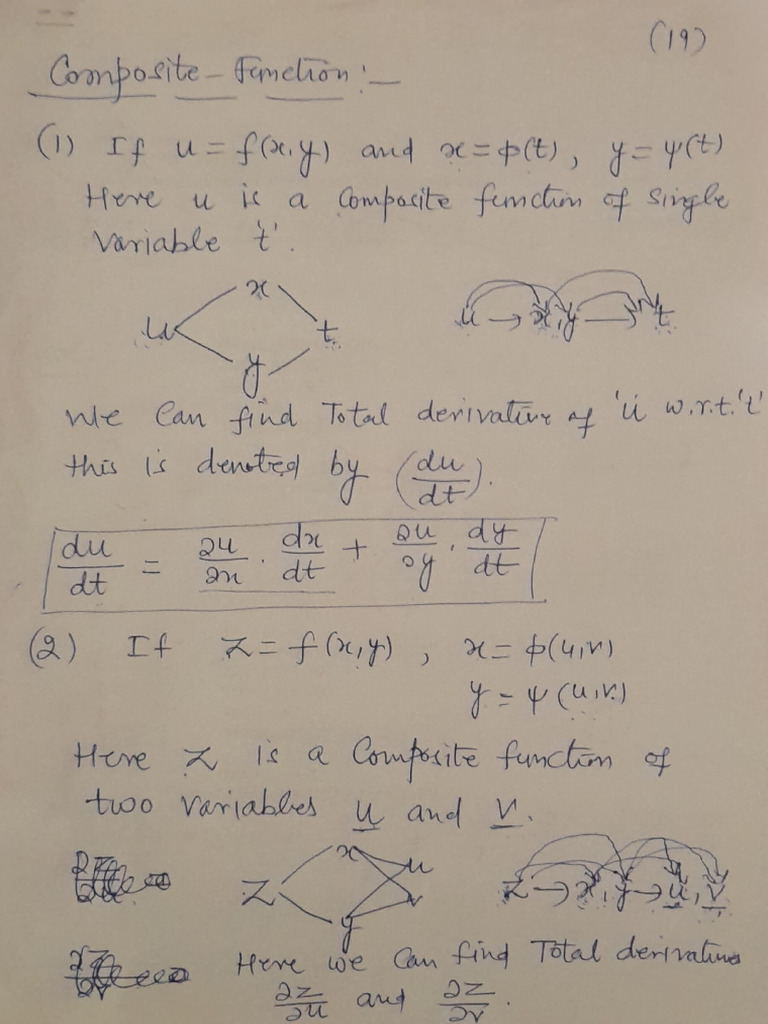 (19)
Composite - Function :-
(1) If u = f(x,y) and x = ϕ(t), y = ψ(t)
Here u is a Composite function of Single
Variable 't'.
x
u t u → x,y → t
y
We Can find Total derivative of 'u' w.r.t. 't'
this is denoted by (du/dt).
du/dt = ∂u/∂x · dx/dt + ∂u/∂y · dy/dt
(2) If Z = f(x,y) , x = ϕ(u,v)
y = ψ(u,v)
Here Z is a Composite function of
two variables u and v.
x u
Z v Z → x,y → u,v
y
Here we Can find Total derivatives
∂z/∂u and ∂z/∂v.